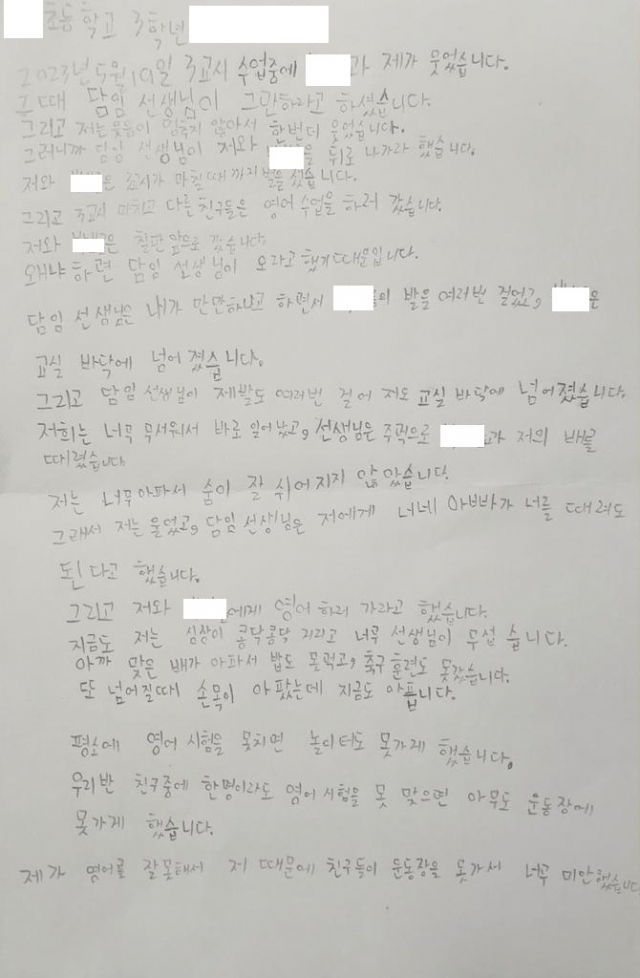 초등학교 3학년
2023년 5월 19일 3교시 수업중에 과 제가 웃었습니다.
그때 담임 선생님이 그만하라고 하셨습니다.
그리고 저는 웃음이 멈추지 않아서 한번더 웃었습니다.
그러니까 담임 선생님이 저와 을 뒤로 나가라 했습니다.
저와 은 3교시가 마칠때까지 벌을 섰습니다.
그리고 3교시 마치고 다른 친구들은 영어 수업을 하러 갔습니다.
저와 은 칠판 앞으로 갔습니다.
왜냐하면 담임 선생님이 오라고 했기때문입니다.
담임 선생님은 내가 만만하냐고 하면서 의 발을 여러번 걸었고, 은
교실 바닥에 넘어졌습니다.
그리고 담임 선생님이 제발도 여러번 걸어 저도 교실 바닥에 넘어졌습니다.
저희는 너무 무서워서 바로 일어났고, 선생님은 주먹으로 과 저의 배를
때렸습니다
저는 너무 아파서 숨이 잘 쉬어지지 않았습니다.
그래서 저는 울었고, 담임 선생님은 저에게 너네 아빠가 너를 때려도
된다고 했습니다.
그리고 저와 에게 영어 하러 가라고 했습니다.
지금도 저는 심장이 콩닥콩닥 거리고 너무 선생님이 무섭습니다.
아까 맞은 배가 아파서 밥도 못먹고, 축구 훈련도 못갔습니다.
또 넘어질때 손목이 아팠는데 지금도 아픕니다.
평소에 영어 시험을 못치면 놀이터도 못가게 했습니다.
우리반 친구중에 한명이라도 영어 시험을 못 맞으면 아무도 운동장에
못가게 했습니다.
제가 영어를 잘못해서 저 때문에 친구들이 운동장을 못가서 너무 미안했습니다